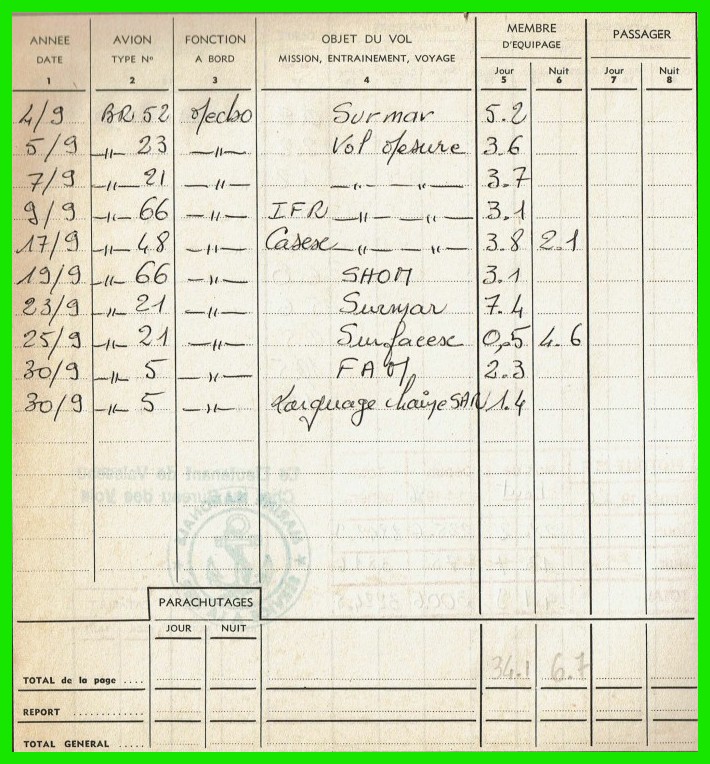 ANNEE AVION FONCTION OBJET DU VOL MEMBRE D'EQUIPAGE PASSAGER
DATE TYPE N° A BORD MISSION, ENTRAINEMENT, VOYAGE Jour Nuit Jour Nuit
1 2 3 4 5 6 7 8
4/9 BR 52 Mecbo Surmar 5.2
5/9 —"— 23 —"— Vol Mesure 3.6
7/9 —"— 21 —"— —"— —"— 3.7
9/9 —"— 66 —"— IFR —"— —"— 3.1
17/9 —"— 48 —"— Casex —"— —"— 3.8 2.1
19/9 —"— 66 —"— SHOM 3.1
23/9 —"— 21 —"— Surmar 7.4
25/9 —"— 21 —"— Surfacex 0,5 4.6
30/9 —"— 5 —"— FAM 2.3
30/9 —"— 5 —"— Larguage chaîne SAR 1.4
PARACHUTAGES
JOUR NUIT
TOTAL de la page .... 34.1 6.7
REPORT ............
TOTAL GENERAL .....